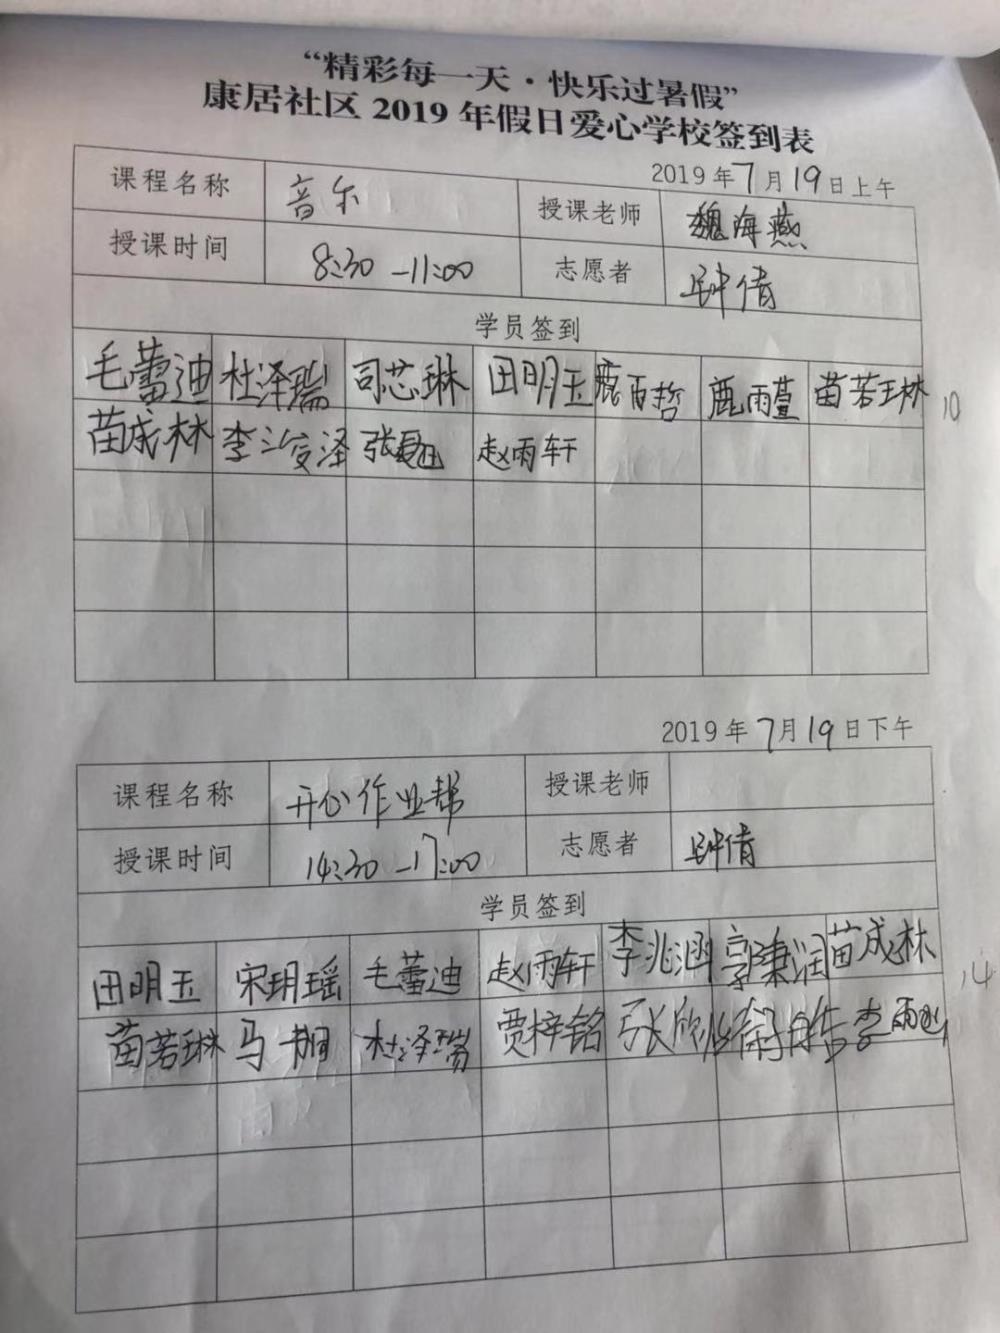 “精彩每一天·快乐过暑假”
康居社区 2019 年假日爱心学校签到表
2019年7月19日上午
课程名称 音乐 授课老师 魏海燕
授课时间 8:30-11:00 志愿者 钟倩
学员签到
毛蕾迪 杜泽瑞 司芯琳 田明玉 鹿百哲 鹿雨萱 苗若琳 10
苗成林 李浚泽 赵雨轩
2019年7月19日下午
课程名称 开心作业帮 授课老师
授课时间 14:30-17:00 志愿者 钟倩
学员签到
田明玉 宋玥瑶 毛蕾迪 赵雨轩 李兆涵 郭秉润 苗成林 14
苗若琳 马 杜泽瑞 贾梓铭 张欣 李雨